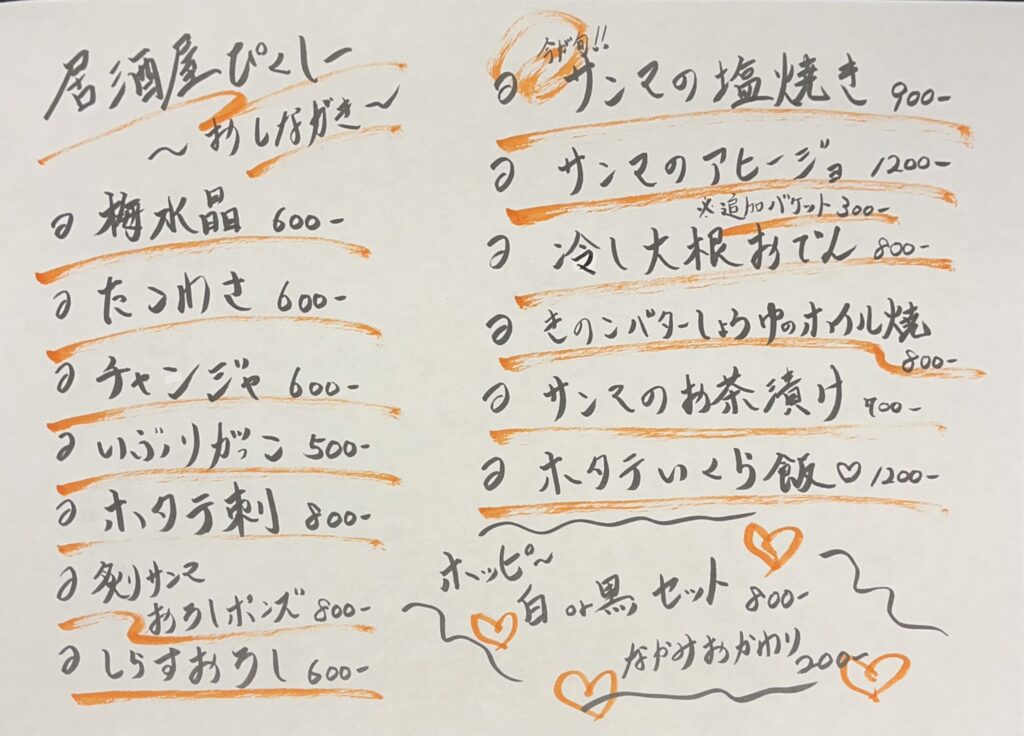 居酒屋ぴくしー
～おしながき～
梅水晶 600-
たこわさ 600-
チャンジャ 600-
いぶりがっこ 500-
ホタテ刺 800-
炙りサンマ
おろしポンズ 800-
しらすおろし 600-
今が旬!!
サンマの塩焼き 900-
サンマのアヒージョ 1200-
※追加バケット 300-
冷し大根おでん 800-
きのこバターしょうゆのホイル焼
800-
サンマのお茶漬け 900-
ホタテいくら飯♡ 1200-
ホッピ～
白 or 黒 セット 800-
なかみおかわり
200-